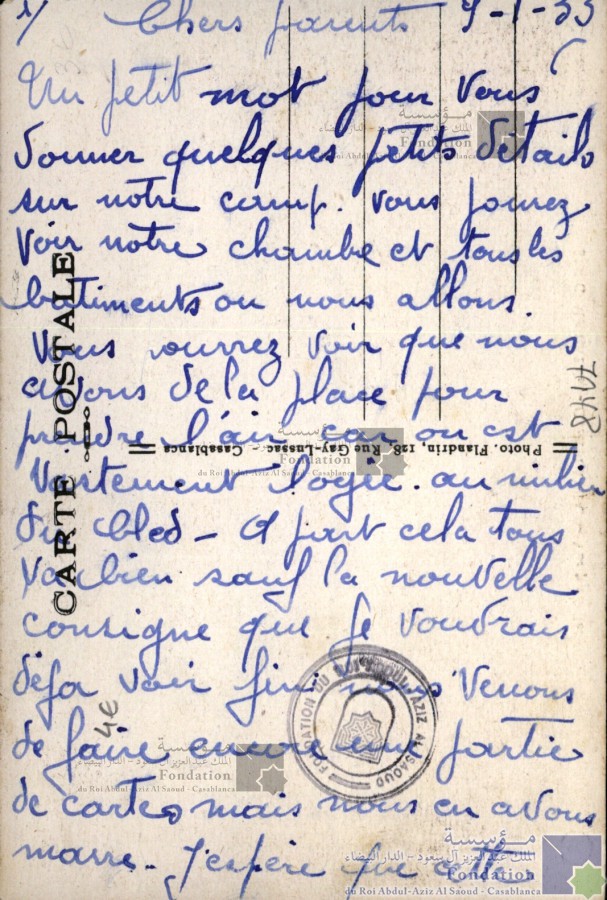 1/ Chers parents 9-1-33
Un petit mot pour vous
donner quelques petits détails
sur notre camp. vous pouvez
voir notre chambe et tous les
batiments ou nous allons.
Vous ourrez voir que nous
avons de la place pour
prendre l'air car on est
Vastement logie. au milieu
du bled - A part cela tous
va bien sauf la nouvelle
consigne que je voudrais
déja voir fini nous venons
de faire encore une partie
de cartes mais nous en avons
marre. J'espère que cette
CARTE POSTALE
Photo. Flandrin, 128, Rue Gay-Lussac - Casablanca
7478
4€
FONDATION DU ROI ABDUL-AZIZ AL SAOUD
مؤسسة
الملك عبد العزيز آل سعود - الدار البيضاء
Fondation
du Roi Abdul-Aziz Al Saoud - Casablanca
مؤسسة
الملك عبد العزيز آل سعود - الدار البيضاء
Fondation
du Roi Abdul-Aziz Al Saoud - Casablanca
مؤسسة
الملك عبد العزيز آل سعود - الدار البيضاء
Fondation
du Roi Abdul-Aziz Al Saoud - Casablanca
مؤسسة
الملك عبد العزيز آل سعود - الدار البيضاء
Fondation
du Roi Abdul-Aziz Al Saoud - Casablanca